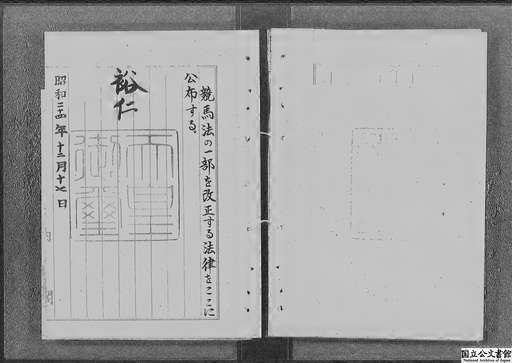 競馬法の一部を改正する法律をここに
公布する。
裕仁
天皇
御璽
昭和二十四年十二月十七日
内閣
国立公文書館
National Archives of Japan